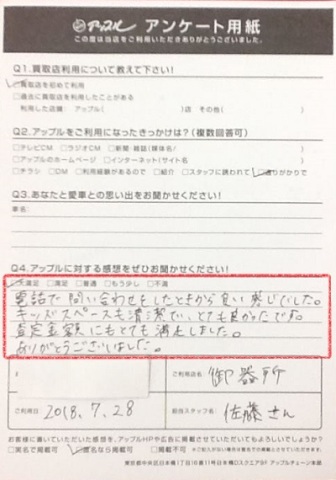 アップル アンケート用紙
この度は当店をご利用いただきありがとうございました。
Q1.買取店利用について教えて下さい!
□買取店を初めて利用
□過去に買取店を利用したことがある
利用した店舗: アップル( )店 その他( )
Q2.アップルをご利用になったきっかけは?(複数回答可)
□テレビCM □ラジオCM □新聞・雑誌(媒体名/ )
□アップルのホームページ □インターネット(サイト名 )
□チラシ □DM □利用経験があるので □紹介 □スタッフに誘われて □通りがかりで
Q3.あなたと愛車との思い出をお聞かせください!
車名:
Q4.アップルに対する感想をぜひお聞かせください!
□大満足 □満足 □普通 □もう少し □不満
電話で問い合わせをしたときから良い感じでした。
キッズスペースも清潔で、とても良かったです。
査定金額にもとても満足しました。
ありがとうございました。
ご利用店名 御器所
ご利用日 2018.7.28
担当スタッフ名 佐藤さん
お客様に書いていただいた感想を、アップルHPや広告に掲載させていただいてもよろしいでしょうか?
□実名で掲載可 □匿名なら掲載可 □掲載不可
東京都中央区日本橋1丁目16番11号日本橋Dスクエア8F アップルチェーン本部